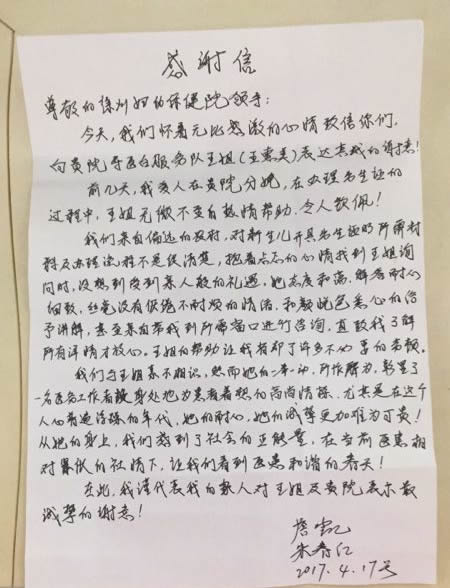 感谢信
尊敬的徐州妇幼保健院领导：
今天，我们怀着无比感激的心情致信你们，
向贵院导医台服务队王姐（王惠美）表达真诚的谢意！
前几天，我爱人在贵院分娩，在办理出生证的
过程中，王姐无微不至的热情帮助，令人钦佩！
我们来自偏远的农村，对新生儿开具出生证明所需材
料及办理流程不是很清楚，抱着忐忑的心情找到王姐询
问时，没想到受到亲人般的礼遇，她态度和蔼，解答耐心
细致，丝毫没有厌倦不耐烦的情绪，和颜悦色悉心的给
予讲解，甚至亲自带我到所需窗口进行咨询，直致我了解
所有详情才放心。王姐的帮助让我省却了许多不必要的麻烦。
我们与王姐素不相识，然而她的一举一动，所作所为，彰显了
一名医务工作者设身处地为患者着想的高尚情操，尤其是在这个
人心普遍浮躁的年代，她的耐心，她的诚挚更加难为可贵！
从她的身上，我们感到了社会的正能量，在当前医患相
对紧张的社情下，让我们看到医患和谐的春天！
在此，我谨代表我的家人对王姐及贵院表示最
诚挚的谢意！
朱春红
2017.4.17号